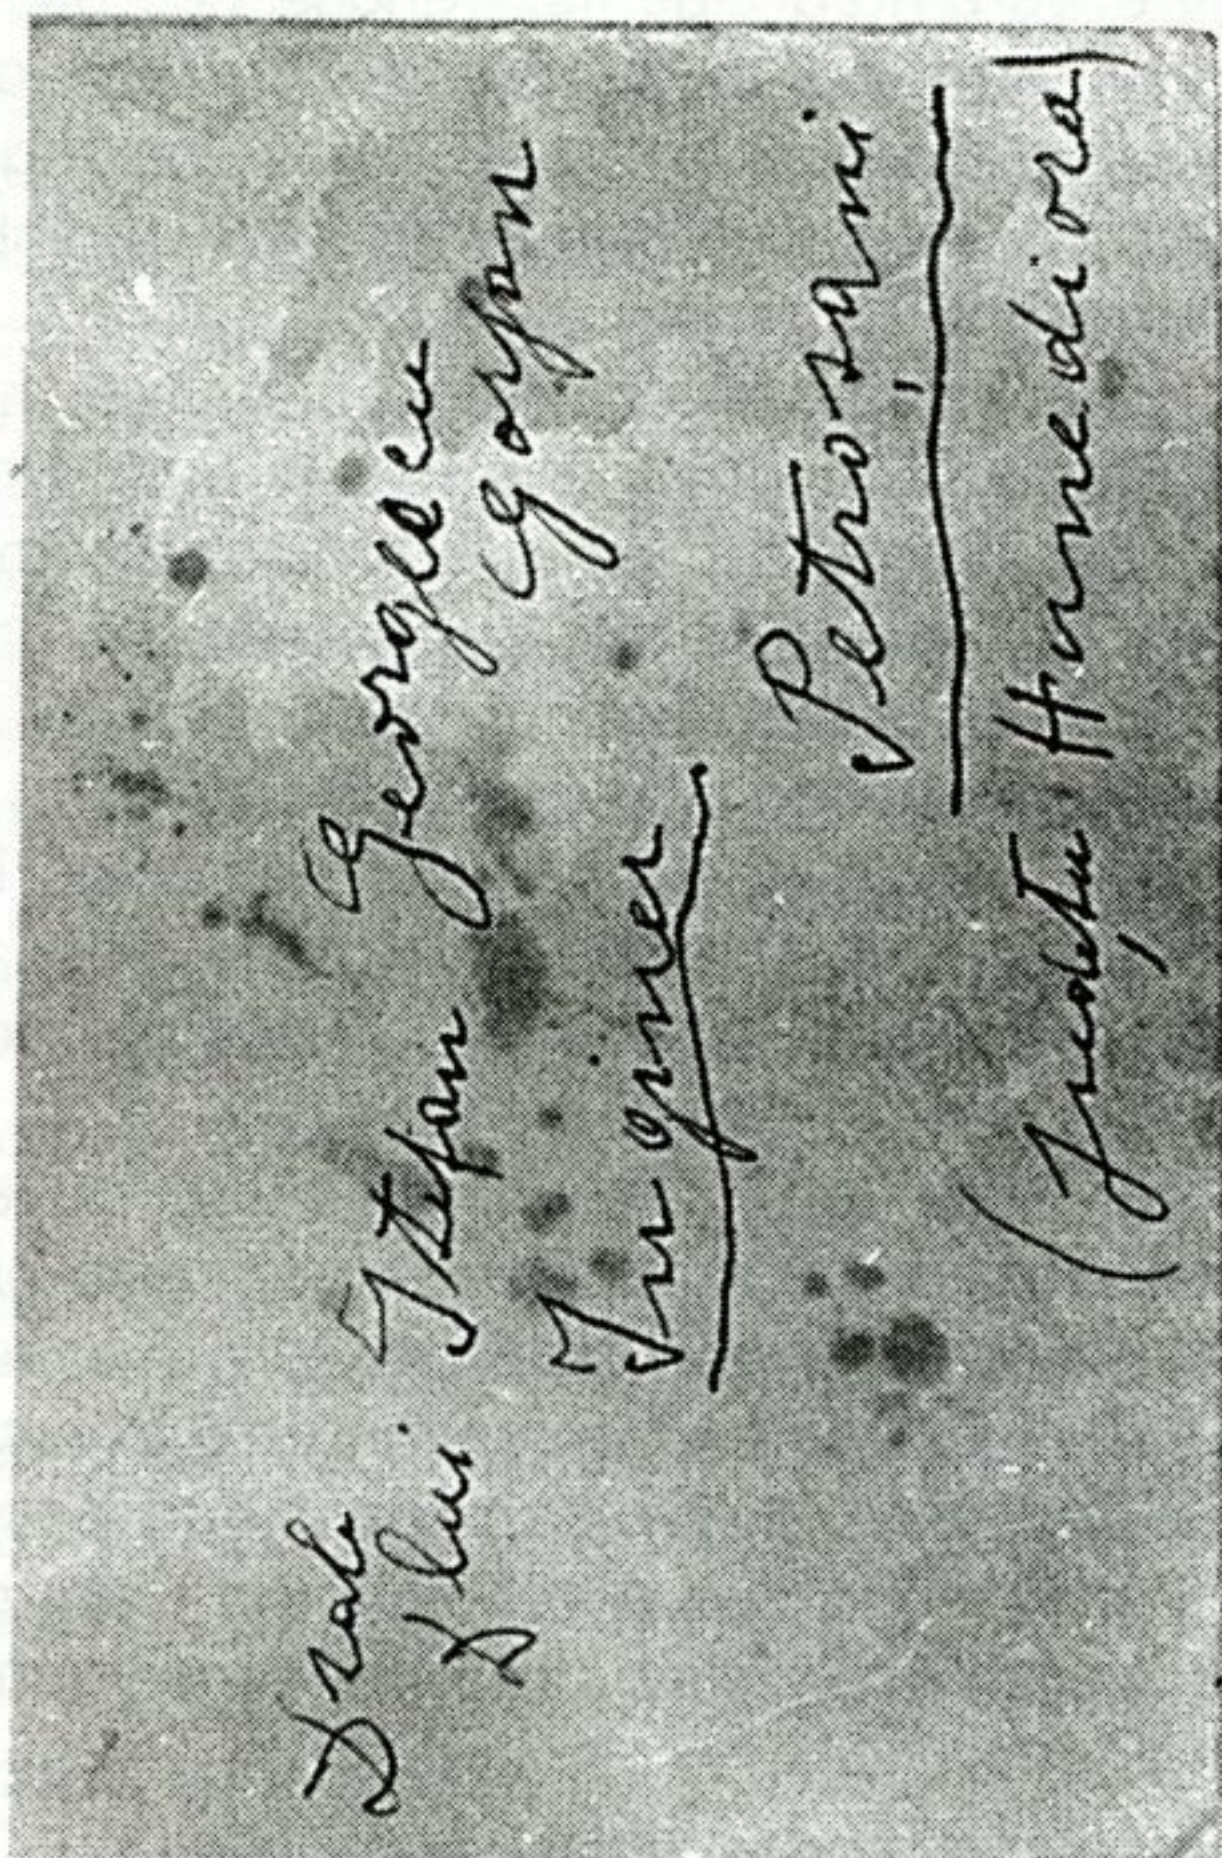 Dsale
Dlui Stefan Georgescu
Gorjan
Inginer
Petroșani
(Județu Hunediora)